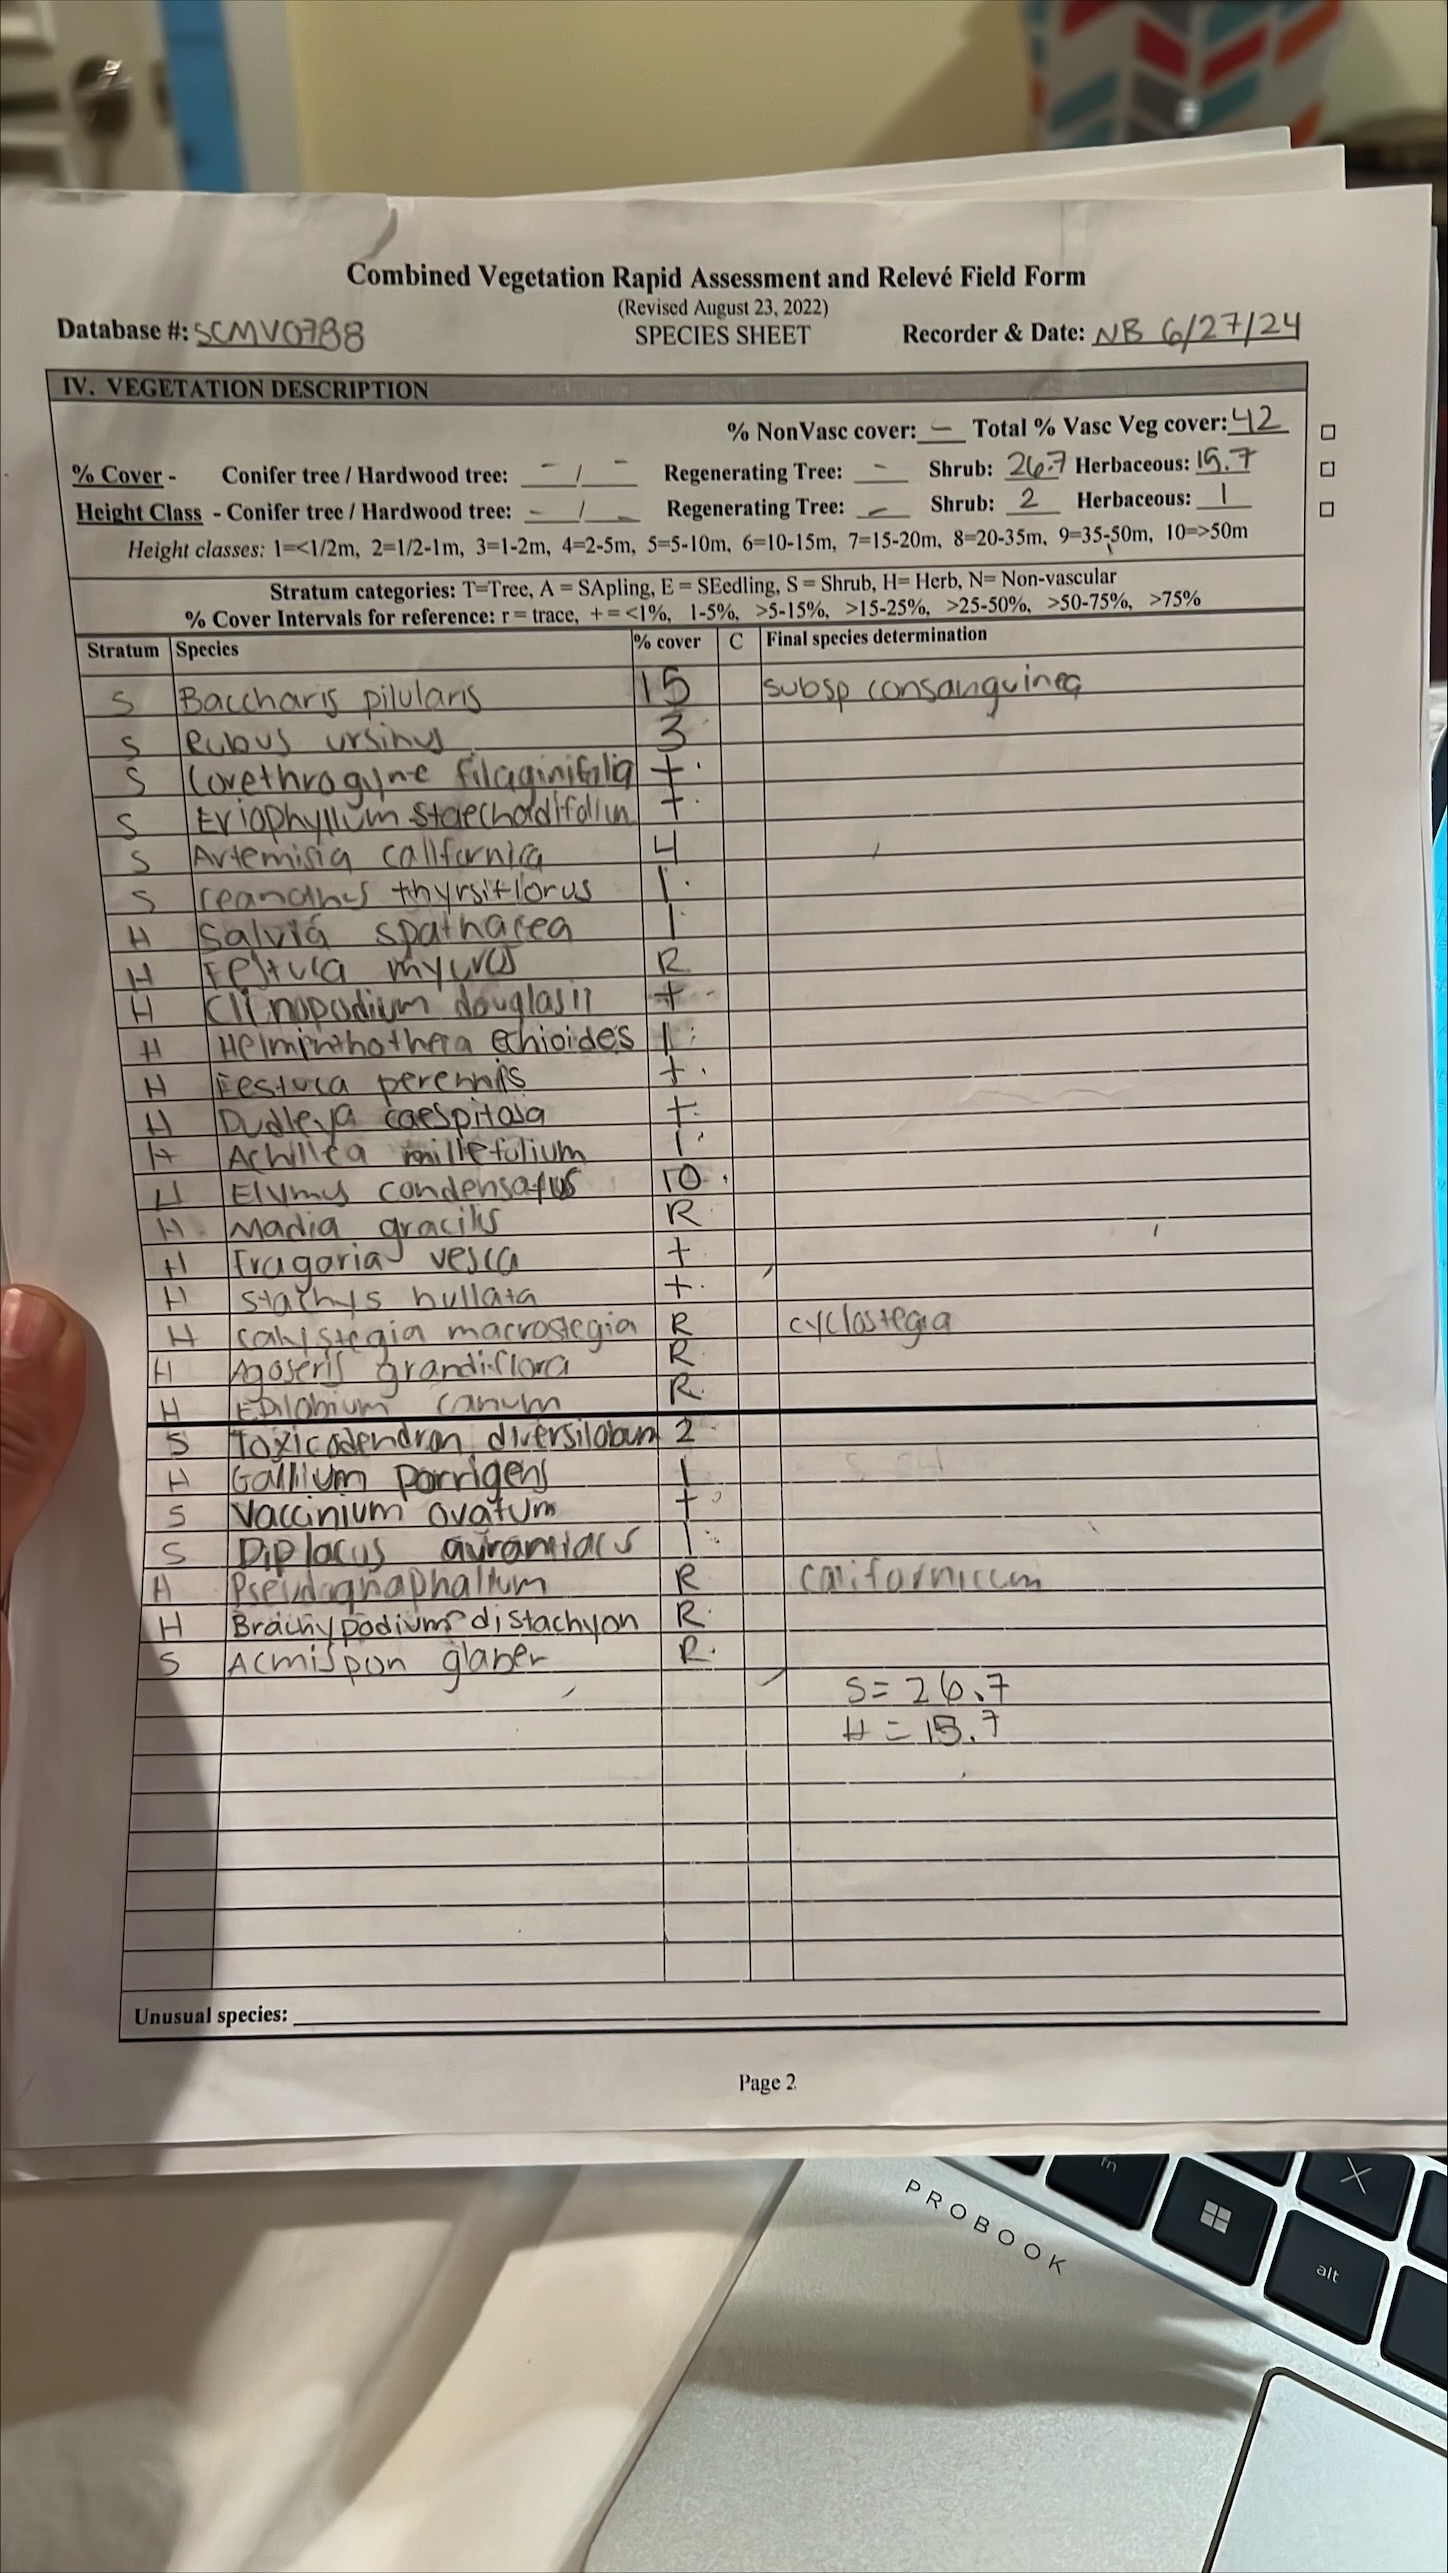 Combined Vegetation Rapid Assessment and Relevé Field Form
(Revised August 23, 2022)
Database #: SCMV0788 SPECIES SHEET Recorder & Date: NB 6/27/24
IV. VEGETATION DESCRIPTION
% NonVasc cover: — Total % Vasc Veg cover: 42
% Cover - Conifer tree / Hardwood tree: - / - Regenerating Tree: - Shrub: 26.7 Herbaceous: 15.7
Height Class - Conifer tree / Hardwood tree: - / - Regenerating Tree: - Shrub: 2 Herbaceous: 1
Height classes: 1=<1/2m, 2=1/2-1m, 3=1-2m, 4=2-5m, 5=5-10m, 6=10-15m, 7=15-20m, 8=20-35m, 9=35-50m, 10=>50m
Stratum categories: T=Tree, A = SApling, E = SEedling, S = Shrub, H= Herb, N= Non-vascular
% Cover Intervals for reference: r = trace, + = <1%, 1-5%, >5-15%, >15-25%, >25-50%, >50-75%, >75%
Stratum Species % cover C Final species determination
S Baccharis pilularis 15 subsp consanguinea
S Rubus ursinus 3
S Corethrogyne filaginifolia +
S Eriophyllum staechadifolium +
S Artemisia californica 4
S Ceanothus thyrsiflorus 1
H Salvia spathacea 1
H Festuca myuros R
H Clinopodium douglasii +
H Helminthotheca echioides 1
H Festuca perennis +
H Dudleya caespitosa +
H Achillea millefolium 1
H Elymus condensatus 10
H Madia gracilis R
H Fragaria vesca +
H Stachys bullata +
H Calystegia macrostegia R cyclostegia
H Agoseris grandiflora R
H Epilobium canum R
S Toxicodendron diversilobum 2
H Gallium porrigens 1
S Vaccinium ovatum +
S Diplacus aurantiacus 1
H Pseudognaphalium R californicum
H Brachypodium distachyon R
S Acmispon glaber R
S= 26.7
H = 15.7
Unusual species:
Page 2
PROBOOK
fn
X
alt